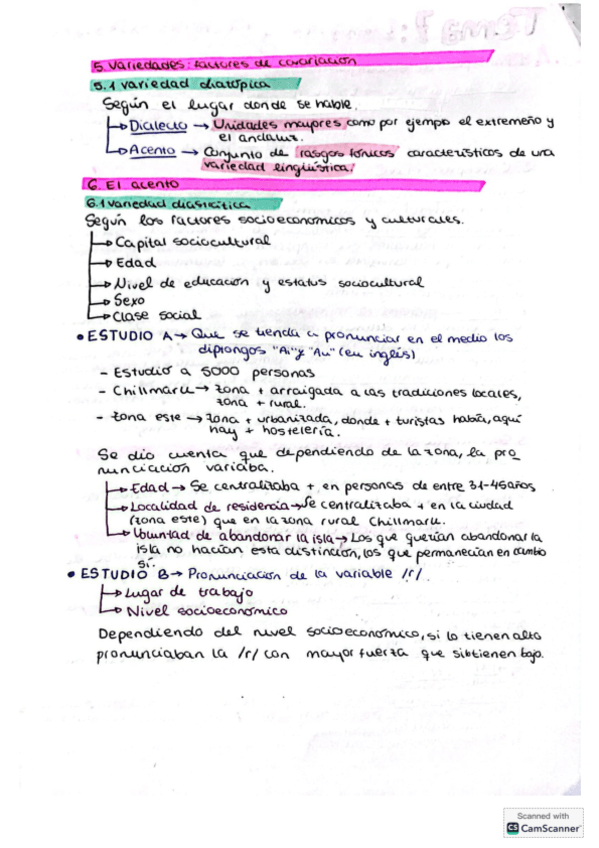 5. Variedades: factores de covariación
5.1 variedad diatópica
Según el lugar donde se hable.
Dialecto → Unidades mayores como por ejemplo el extremeño y
el andaluz.
Acento → Conjunto de rasgos fónicos característicos de una
variedad lingüística.
6. El acento
6.1 variedad diastrática
Según los factores socioeconómicos y culturales.
Capital sociocultural
Edad
Nivel de educación y estatus sociocultural
Sexo
Clase social
• ESTUDIO A → Que se tienda a pronunciar en el medio los
diptongos "Ai" y "Au" (en inglés)
- Estudio a 5000 personas
- Chillmaru → zona + arraigada a las tradiciones locales,
zona + rural.
- zona este → zona + urbanizada, donde + turistas había, aquí
hay + hostelería.
Se dio cuenta que dependiendo de la zona, la pro_
nunciación variaba.
Edad → Se centralizaba + en personas de entre 31-45 años
Localidad de residencia → Se centralizaba + en la ciudad
(zona este) que en la zona rural Chillmaru.
Voluntad de abandonar la isla → Los que querían abandonar la
isla no hacían esta distinción, los que permanecían en cambio
sí.
• ESTUDIO B → Pronunciación de la variable /r/.
Lugar de trabajo
Nivel socioeconómico
Dependiendo del nivel socioeconómico, si lo tienen alto
pronunciaban la /r/ con mayor fuerza que si b tienen bajo.
Scanned with
CS CamScanner